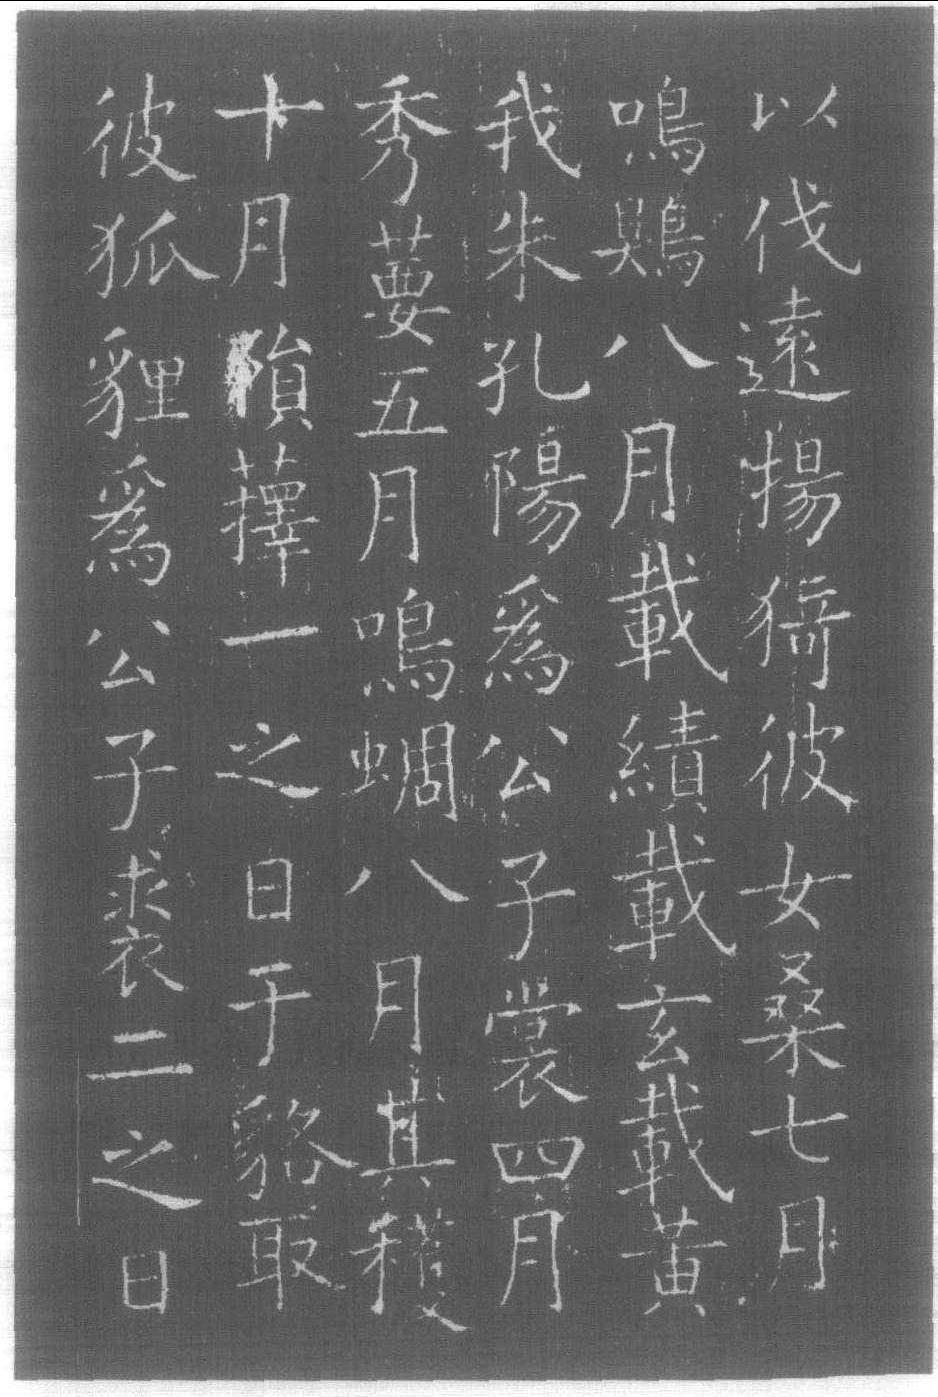 以伐遠揚猗彼女桑七月
鳴鵙八月載績載玄載黃
我朱孔陽爲公子裳四月
秀葽五月鳴蜩八月其穫
十月隕蘀一之日于貉取
彼狐貍爲公子裘二之日